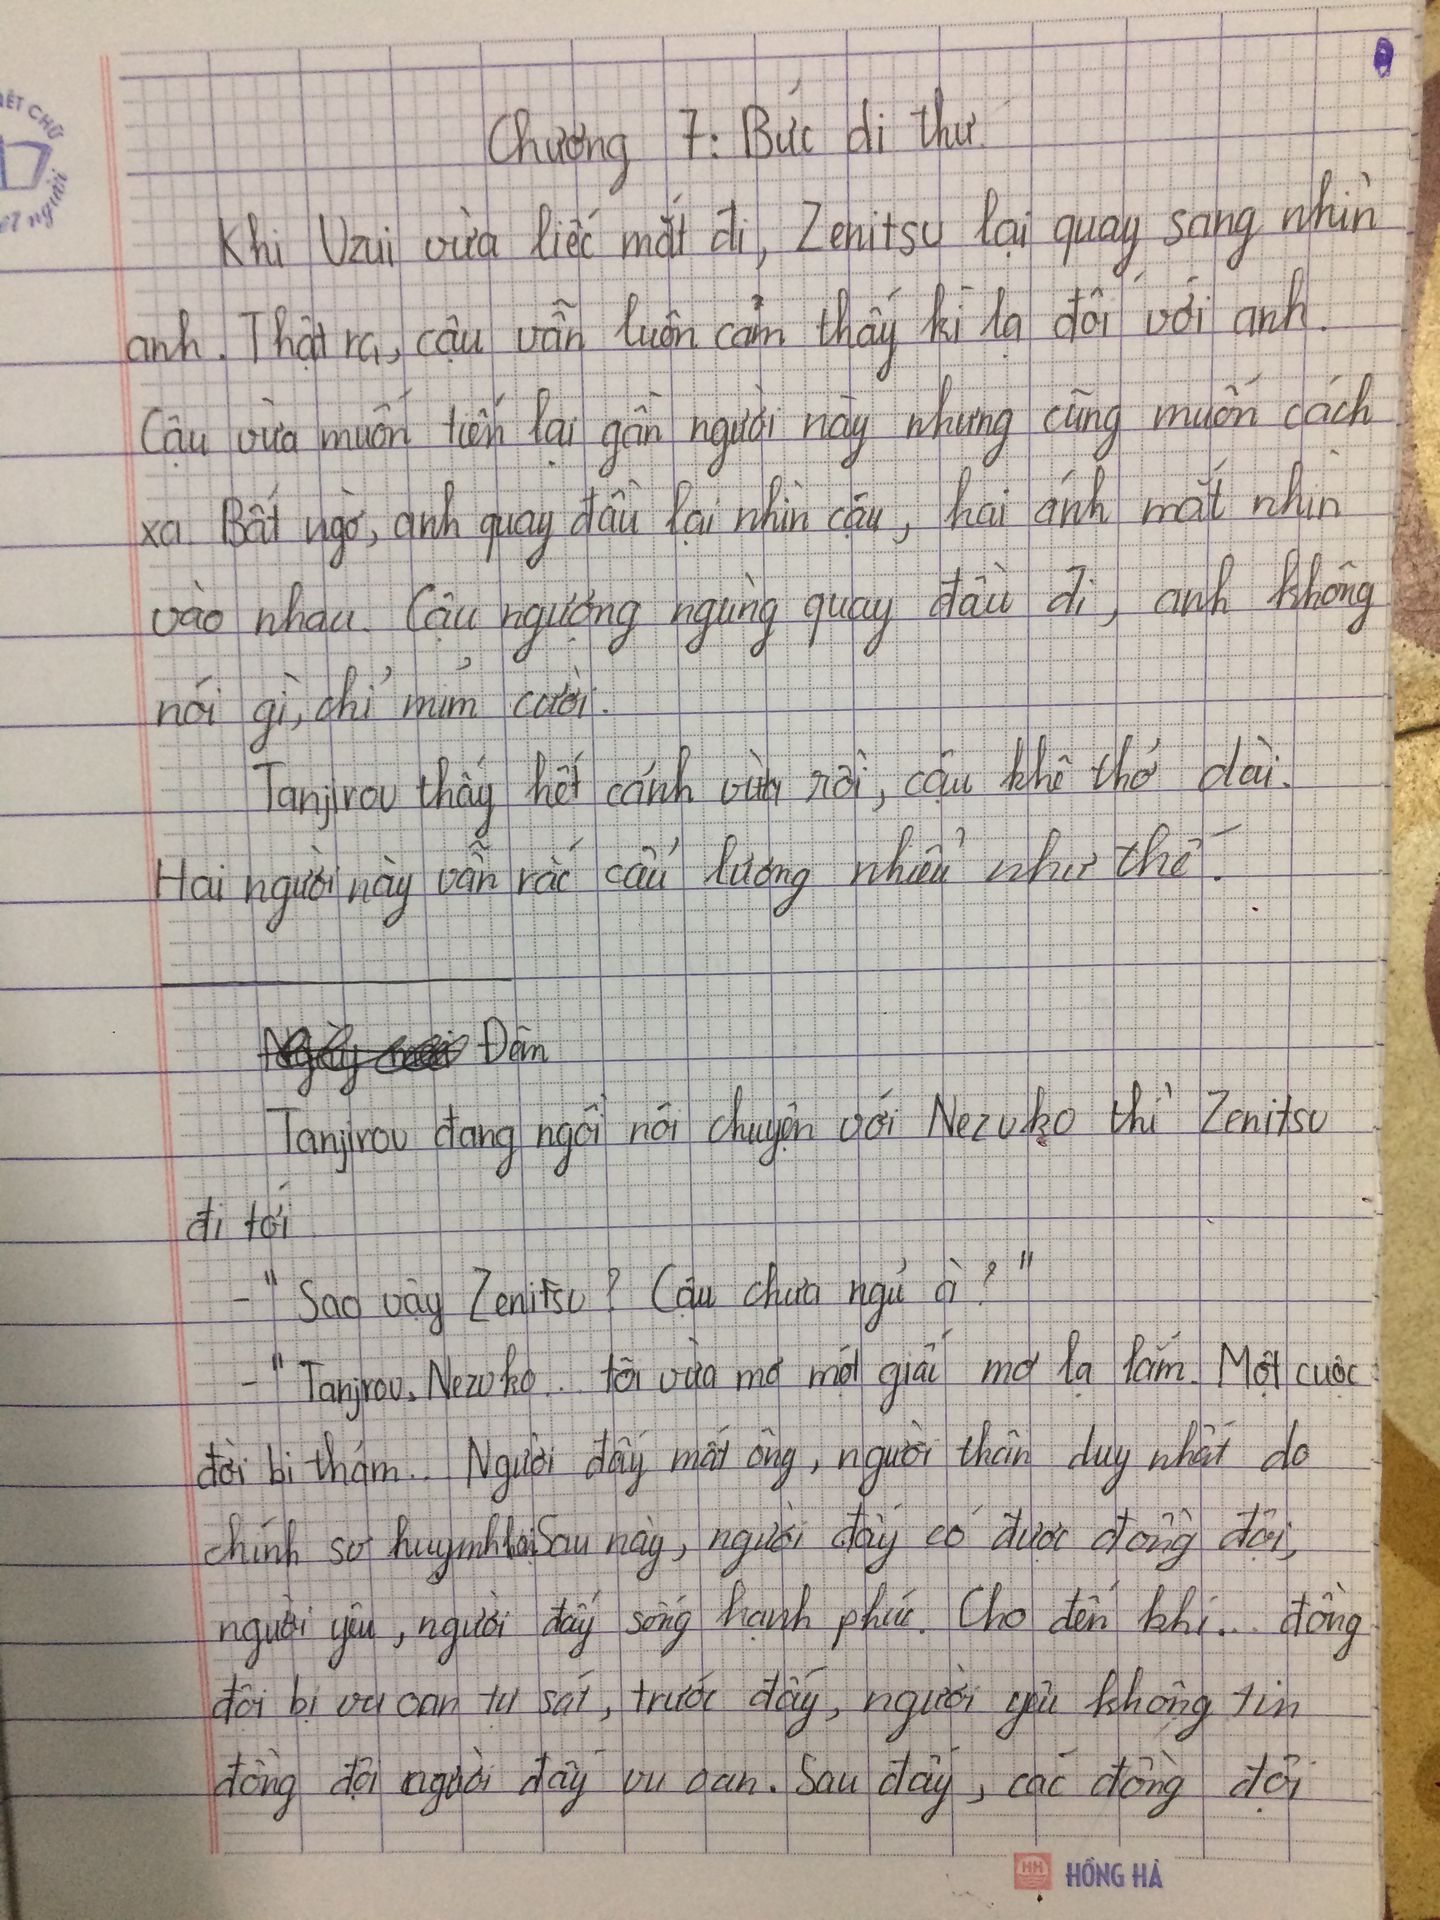 Chương 7: Bức di thư.
Khi Uzui vừa liếc mắt đi, Zenitsu lại quay sang nhìn
anh. Thật ra, cậu vẫn luôn cảm thấy kì lạ đối với anh.
Cậu vừa muốn tiến lại gần người này nhưng cũng muốn cách
xa. Bất ngờ, anh quay đầu lại nhìn cậu, hai ánh mắt nhìn
vào nhau. Cậu ngượng ngùng quay đầu đi, anh không
nói gì, chỉ mỉm cười.
Tanjirou thấy hết cảnh vừa rồi, cậu khẽ thở dài.
Hai người này vẫn rắc cẩu lương nhiều như thế.
Đêm
Tanjirou đang ngồi nói chuyện với Nezuko thì Zenitsu
đi tới
-" Sao vậy Zenitsu? Cậu chưa ngủ à? "
-" Tanjrou, Nezuko... tôi vừa mơ một giấc mơ lạ lắm. Một cuộc
đời bi thảm... Người đấy mất ông, người thân duy nhất do
chính sư huynh Sau này, người đấy có được đồng đội,
người yêu, người đấy sống hạnh phúc. Cho đến khi... đồng
đội bị vu oan tự sát, trước đấy, người yêu không tin
đồng đội người đấy vu oan. Sau đấy, các đồng đội
HỒNG HÀ
CHỮ
người